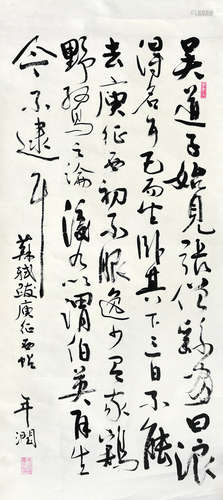 吳道子始見張僧繇畫曰浪
得名耳已而坐臥其下三日不能
去庾征西初不服逸少有家鷄
野鶩之論後乃以謂伯英再生
今不逮耳
蘇軾跋庾征西帖